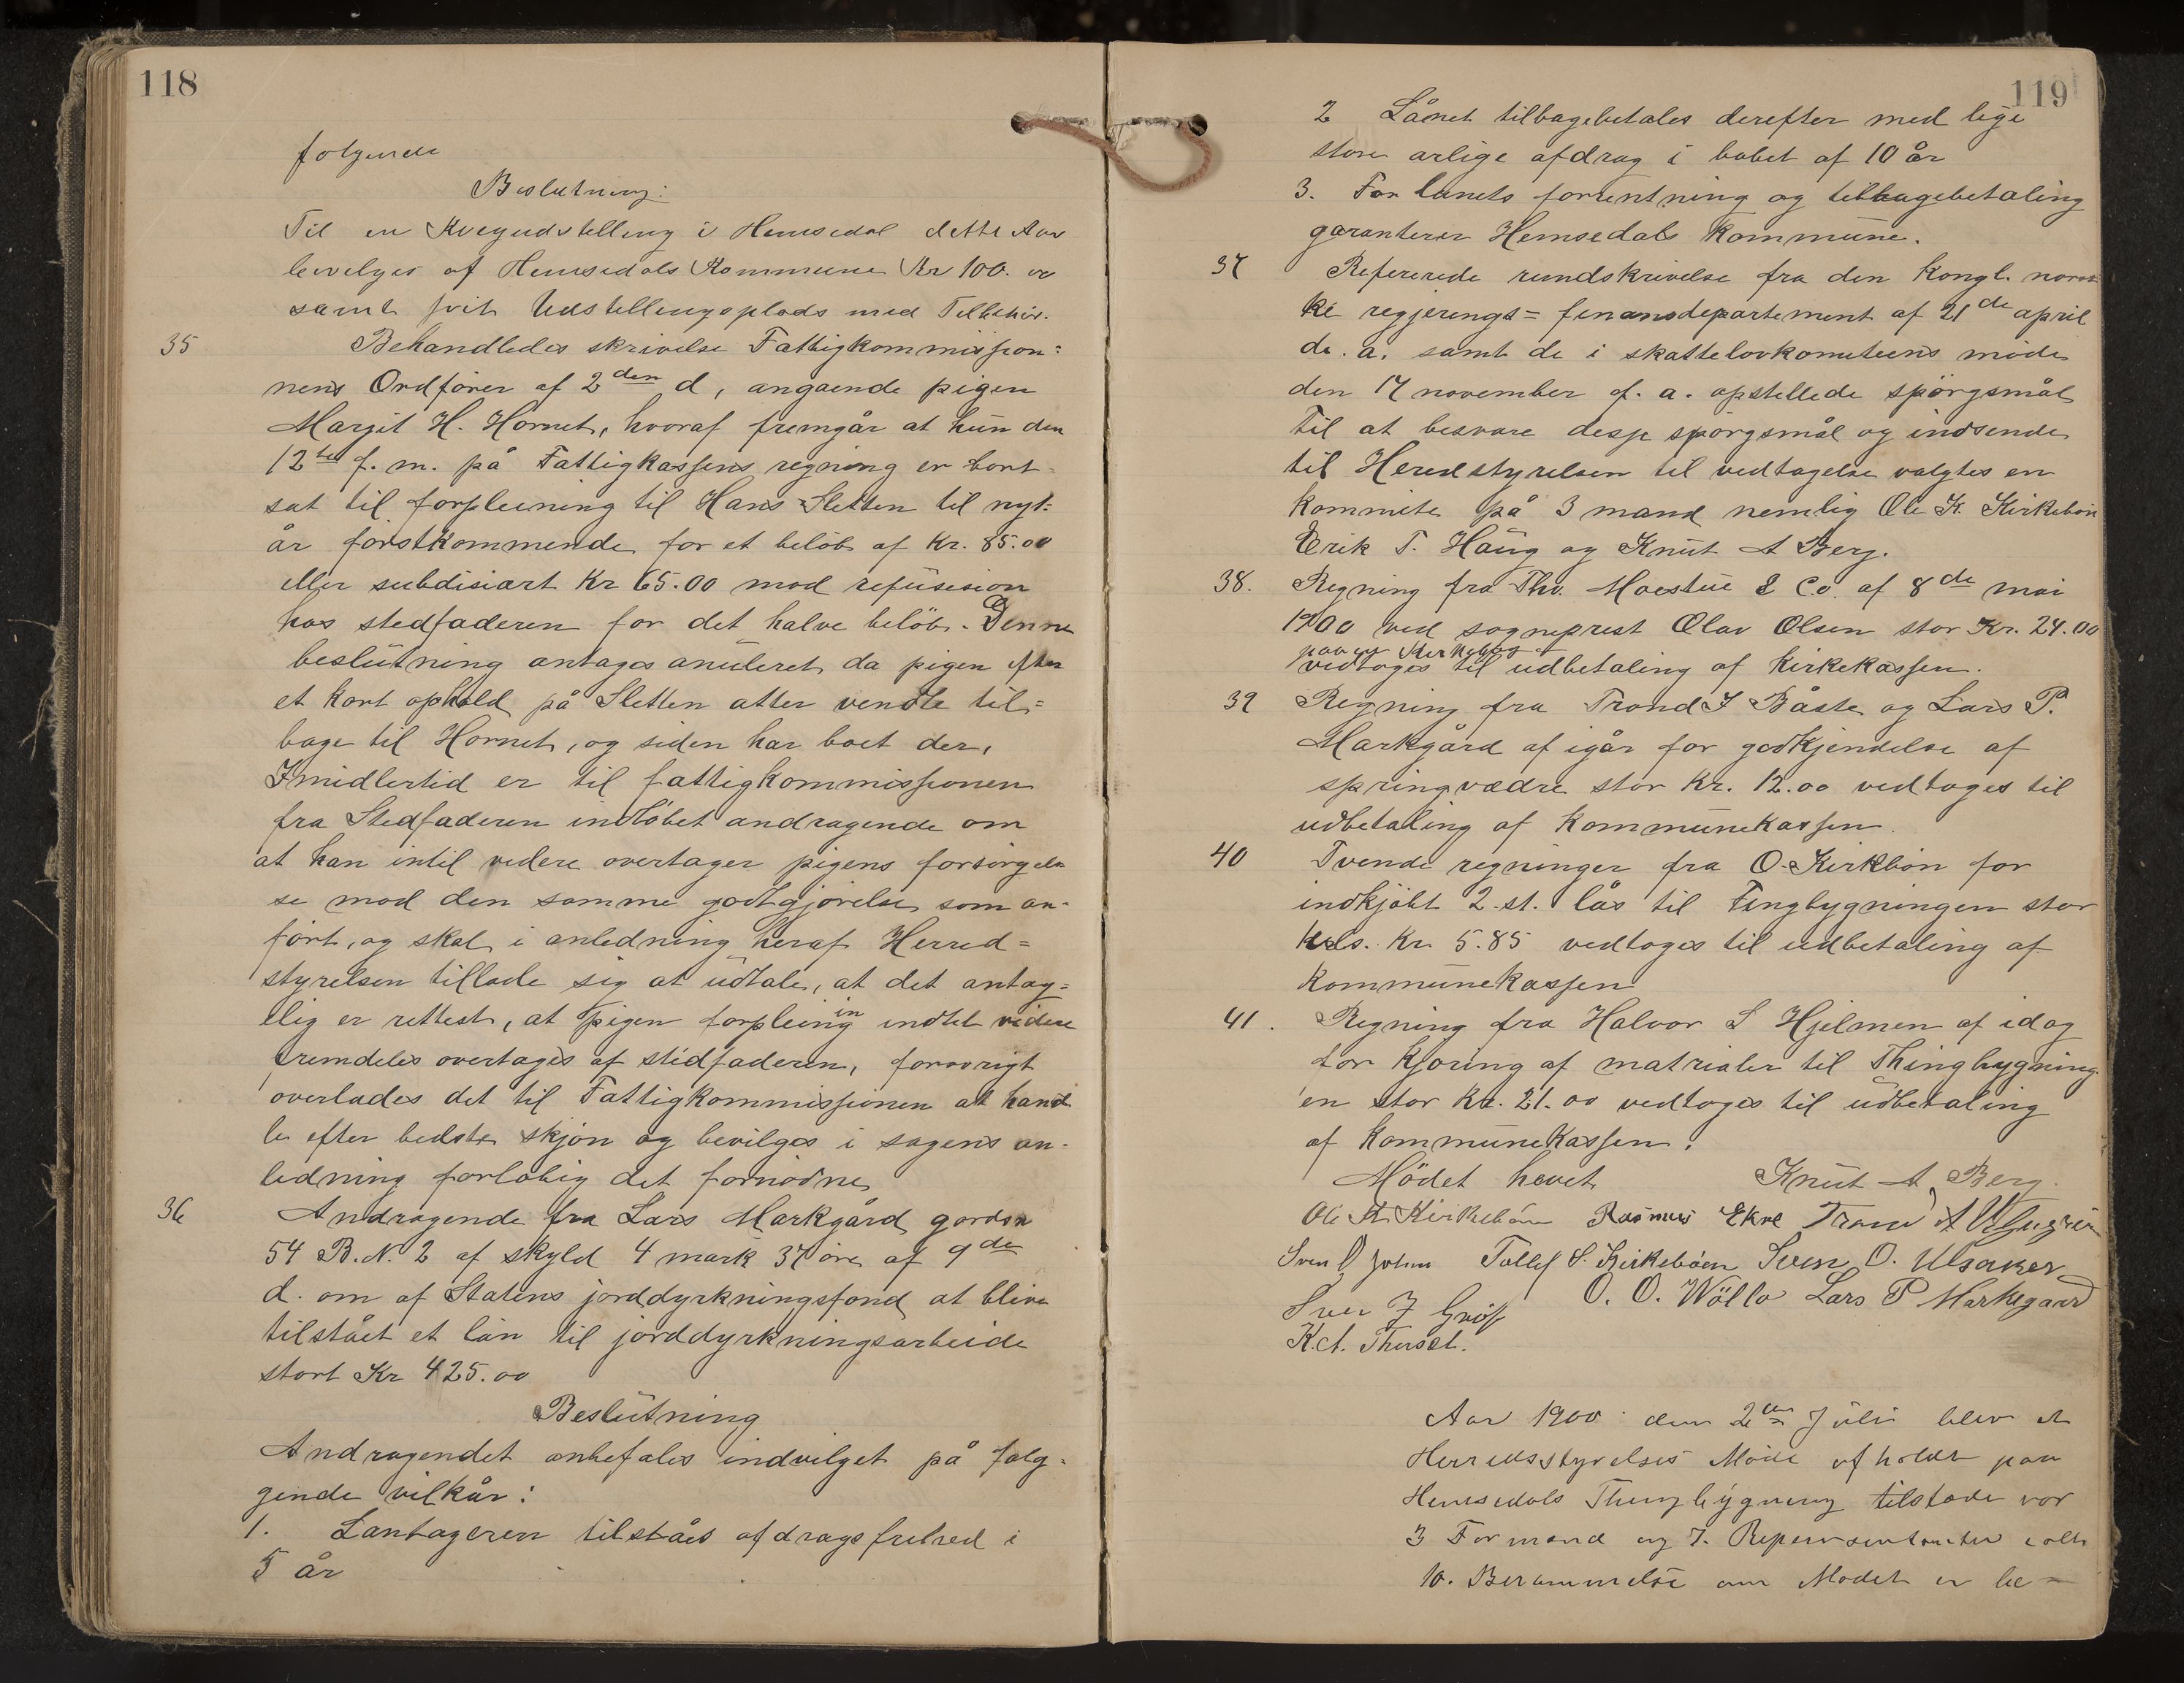 118
følgende
Beslutning:
Til en Kvegudstilling i Hemsedal dette Aar
bevilges af Hemsedals Kommune Kr 100.00
samt frit Udstillingsplads med Tilbehör.
35 Behandledes skrivelse Fattigkommission=
nens Ordförer af 2den d, angaende pigen
Margit H. Hornet, hvoraf fremgår at hun den
12te f. m. på Fattigkassens regning er bort=
sat til forpleining til Hans Sletten til nyt=
år förstkommende for et belöb af Kr. 85.00
eller subdisiart Kr 65.00 mod refusision
hos stedfaderen for det halve belöb. Denne
beslutning antages anuleret da pigen efter
et kort ophold på Sletten atter vendte til=
bage til Hornet, og siden har boet der,
Imidlertid er til fattigkommissionen
fra Stedfaderen indlöbet andragende om
at han intil videre overtager pigens forsörgel
se mod den samme godtgjörelse som an=
fört, og skal i anledning heraf Herred=
styrelsen tillade sig at udtale, at det antag=
elig er rettest, at pigen forpleining indtil videre
fremdeles overtages af stedfaderen, forövrigt
overlades det til Fattigkommissionen at hand
le efter bedste skjön og bevilges i sagens an=
ledning forlöbig det fornödne
36 Andragende fra Lars Markgård gardsn
54 B.N. 2 af skyld 4 mark 37 öre af 9de
d. om af Statens jorddyrkningsfond at blive
tilstået et lån til jorddyrkningsarbeide
stort Kr 425.00
Beslutning
Andragendet anbefales indvilget på følg=
gende vilkår:
1. Lantageren tilståes afdragsfrihed i
5 år
119
2 Lånet tilbagebetales derefter med lige
store arlige afdrag i löbet af 10 år
3. For lånets forrentning og tilbagebetaling
garanterer Hemsedals Kommune.
37 Refererede rundskrivelse fra den Kongl. nors
ke regjerings= finansdepartement af 21de april
d. a. samt de i skattelovkomiteens möde
den 17 november f. a. opstillede spörgsmål
Til at besvare desse spörgsmål og indsende
til Heredstyrelsen til vedtagelse valgtes en
kommite på 3 mand nemlig Ole K. Kirkebön
Erik T. Haug og Knut A Berg.
38. Regning fra Tho. Moestue & Co. af 8de mai
1900 ved sogneprest Olav Olsen stor Kr. 24.00
vedtoges til udbetaling af Kirkekassen.
39 Regning fra Trond I Båste og Lars P.
Markgård af igår for godkjendelse af
springvædre stor Kr. 12.00 vedtoges til
udbetaling af Kommunekassen.
40 Tvende regninger fra O. Kirkbön for
indkjöbt 2. st. lås til Tingbygningen stor
tils. Kr 5.85 vedtoges til udbetaling af
Kommunekassen
41. Regning fra Halvor S Hjelmen af idag
for Kjöring af matrialer til Thingbygning
en stor Kr. 21.00 vedtoges til udbetaling
af Kommunekassen.
Mödet hevet Knut A Berg.
Ole K Kirkebön Rasmus Ekre Trond A
Sven O Tollef S. Kirkeböen Sven O. Ulsaker
Sven J Gröf O. O. Wöllo Lars P Markegaard
K.A. Thorset.
Aar 1900 den 2den Juli blev et
Herredsstyrelses Möde afholdt paa
Hemsedals Thingbygning tilstede var
3 Formænd og 7. Representanter ialt
10. Berammelse om Mödet er be=